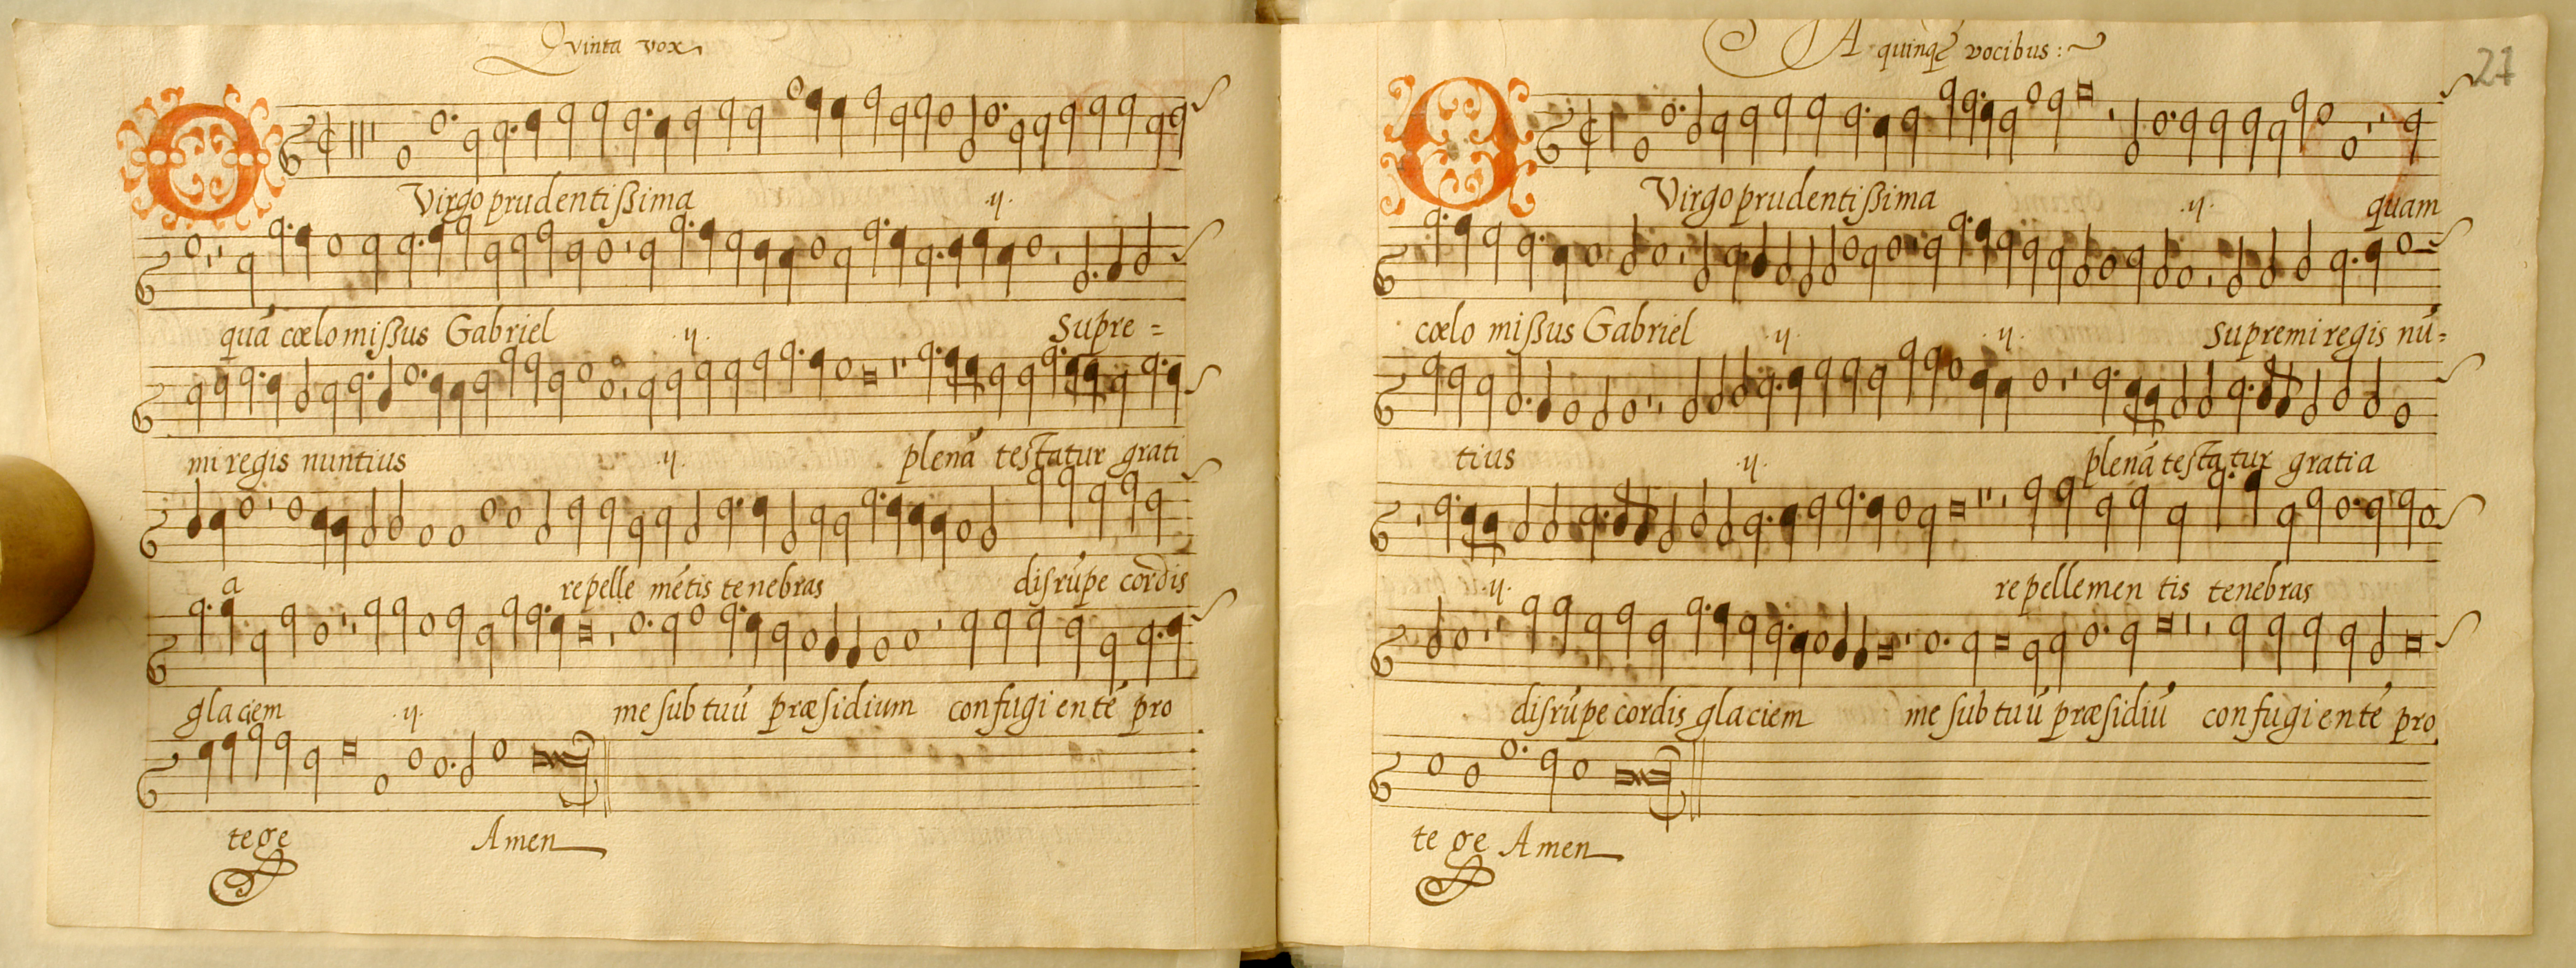 Quinta vox
O Virgo prudentißima .ij.
quā cœlo mißus Gabriel .ij. Supre=
mi regis nuntius .ij. plenā testatur grati
a repelle mētis tenebras disrūpe cordis
glaciem .ij. me sub tuū præsidium confugientē pro
tege Amen
A quinq vocibus:~
27
O Virgo prudentißima .ij. quam
cœlo mißus Gabriel .ij. .ij. Supremi regis nū=
tius .ij. plenā testatur gratia
.ij. repelle mentis tenebras
disrūpe cordis glaciem me sub tuū præsidiū confugientē pro
tege Amen